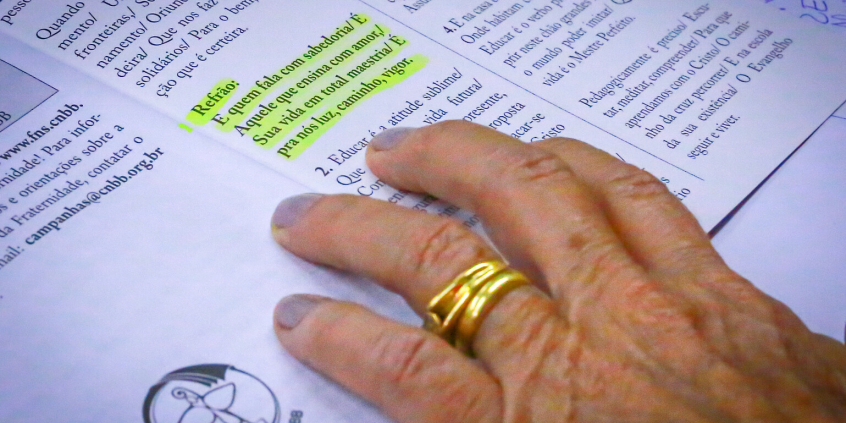 Quando
mento/ U
fronteiras,/ Su
namento/ Oriun
deira/ Que nos faz
solidários/ Para o bem,
ção que é certeira.
1 Refrão:
E quem fala com sabedoria/ É
Aquele que ensina com amor,/
Sua vida em total maestria/ É
pra nós luz, caminho, vigor.
2. Educar é a atitude sublime/
Que
vida futura/
presente,
roposta
car-se
isto
4. E na casa e
Onde habitam
Educar é o verbo p
prir neste chão grandes
o mundo poder imitar/
vida é o Mestre Perfeito.
Pedagogicamente é preciso/ Escu-
tar, meditar, compreender/ Para que
aprendamos com o Cristo/ O cami-
nho da cruz percorrer/ E na escola
da sua existência/ O Evangelho
seguir e viver.
www.fns.cnbb.
rnidade! Para infor-
s e orientações sobre a
da Fraternidade, contatar o
mail: campanhas@cnbb.org.br
BB